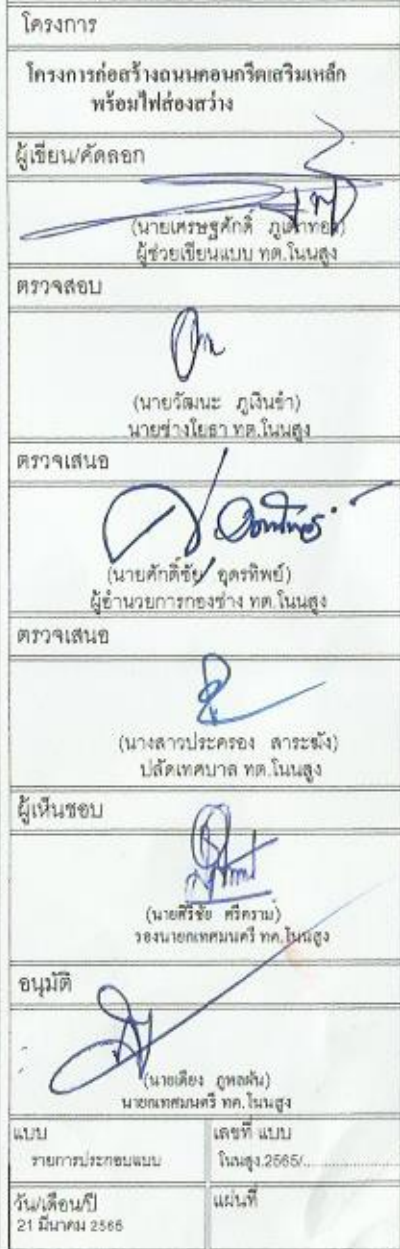 โครงการ
โครงการก่อสร้างถนนคอนกรีตเสริมเหล็ก
พร้อมไฟส่องสว่าง
ผู้เขียน/คัดลอก
(นายเศรษฐศักดิ์
ผู้ช่วยเขียนแบบ ทต.โนนสูง
ตรวจสอบ
(นายวัฒนะ ภูเงินขำ)
นายช่างโยธา ทต.โนนสูง
ตรวจเสนอ
(นายศักดิ์ชัย อุดรทิพย์)
ผู้อำนวยการกองช่าง ทต.โนนสูง
ตรวจเสนอ
(นางสาวประครอง สาระขัง)
ปลัดเทศบาล ทต.โนนสูง
ผู้เห็นชอบ
(นายศิริชัย ศรีคราม)
รองนายกเทศมนตรี ทต.โนนสูง
อนุมัติ
(นายเคียง ภูพลผัน)
นายกเทศมนตรี ทต.โนนสูง
แบบ
รายการประกอบแบบ
เลขที่ แบบ
โนนสูง.2565/............
วัน/เดือน/ปี
21 มีนาคม 2565
แผ่นที่